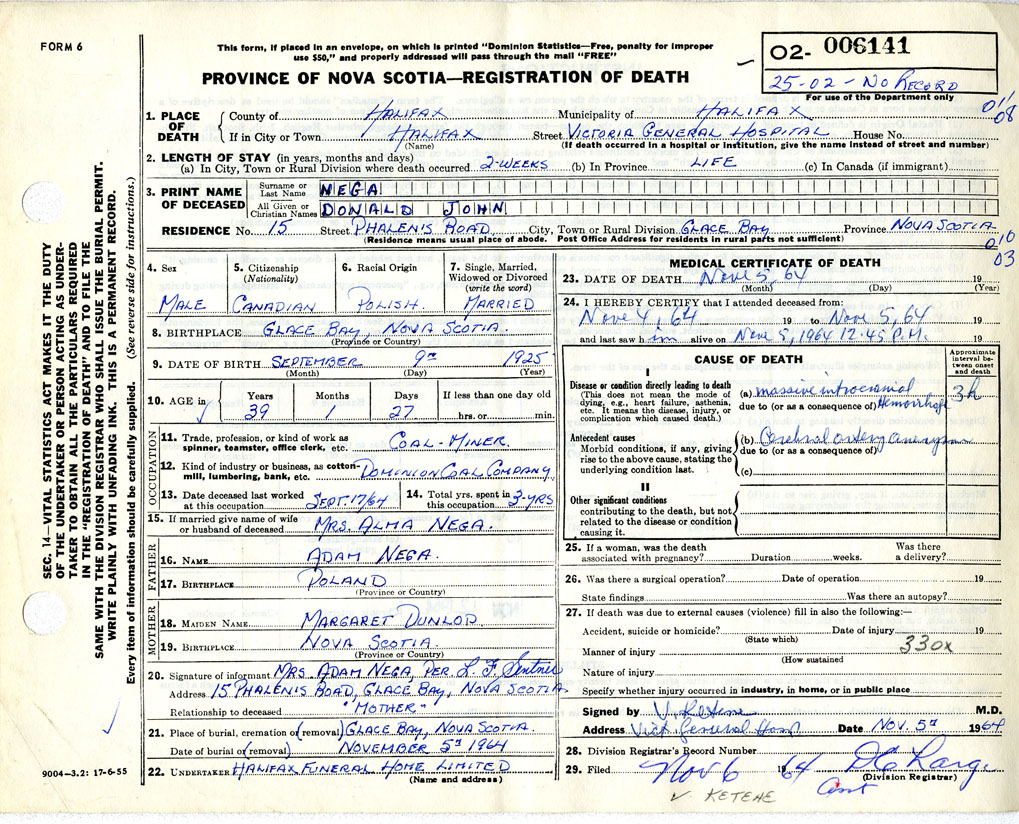 FORM 6
This form, if placed in an envelope, on which is printed "Dominion Statistics—Free, penalty for improper
use $50," and properly addressed will pass through the mail "FREE"
PROVINCE OF NOVA SCOTIA—REGISTRATION OF DEATH
02- 006141
25-02 - NO RECORD
For use of the Department only
011
08
1. PLACE OF DEATH
County of HALIFAX Municipality of HALIFAX
If in City or Town HALIFAX Street VICTORIA GENERAL HOSPITAL House No.
(Name) (If death occurred in a hospital or institution, give the name instead of street and number)
2. LENGTH OF STAY (in years, months and days)
(a) In City, Town or Rural Division where death occurred 2-WEEKS (b) In Province LIFE (c) In Canada (if immigrant)
3. PRINT NAME OF DECEASED
Surname or Last Name NEGA
All Given or Christian Names DONALD JOHN
RESIDENCE No. 15 Street PHALEN'S ROAD, City, Town or Rural Division GLACE BAY Province NOVA SCOTIA
(Residence means usual place of abode. Post Office Address for residents in rural parts not sufficient)
010
03
4. Sex 5. Citizenship (Nationality) 6. Racial Origin 7. Single, Married, Widowed or Divorced (write the word)
MALE CANADIAN POLISH. MARRIED
8. BIRTHPLACE GLACE BAY, NOVA SCOTIA.
(Province or Country)
9. DATE OF BIRTH SEPTEMBER 9TH 1925
(Month) (Day) (Year)
10. AGE in Years Months Days If less than one day old
39 1 27 hrs. or min.
OCCUPATION
11. Trade, profession, or kind of work as spinner, teamster, office clerk, etc. COAL-MINER.
12. Kind of industry or business, as cotton-mill, lumbering, bank, etc. DOMINION COAL COMPANY
13. Date deceased last worked at this occupation SEPT. 17/64 14. Total yrs. spent in this occupation 3-YRS
15. If married give name of wife or husband of deceased MRS. ALMA NEGA.
FATHER
16. NAME ADAM NEGA.
17. BIRTHPLACE POLAND
(Province or Country)
MOTHER
18. MAIDEN NAME MARGARET DUNLOP.
19. BIRTHPLACE NOVA SCOTIA
(Province or Country)
20. Signature of informant MRS. ADAM NEGA, PER L. F.
Address 15 PHALEN'S ROAD, GLACE BAY, NOVA SCOTIA
Relationship to deceased "MOTHER"
21. Place of burial, cremation or (removal) GLACE BAY, NOVA SCOTIA.
Date of burial or (removal) NOVEMBER 5TH 1964
22. UNDERTAKER HALIFAX FUNERAL HOME LIMITED
(Name and address)
MEDICAL CERTIFICATE OF DEATH
23. DATE OF DEATH Nove 5, 64
(Month) (Day) (Year)
24. I HEREBY CERTIFY that I attended deceased from:
Nove 4, 64 19 to Nove 5, 64 19
and last saw him alive on Nove 5, 1964 12.45 P.M. 19
CAUSE OF DEATH
Approximate interval between onset and death
I
Disease or condition directly leading to death
(This does not mean the mode of dying, e.g., heart failure, asthenia, etc. It means the disease, injury, or complication which caused death.)
(a) massive intracranial Hemorrhage 3h
due to (or as a consequence of)
Antecedent causes
Morbid conditions, if any, giving rise to the above cause, stating the underlying condition last.
(b) Cerebral artery aneurysm
due to (or as a consequence of)
(c)
II
Other significant conditions
contributing to the death, but not related to the disease or condition causing it.
25. If a woman, was the death associated with pregnancy? Duration weeks. Was there a delivery?
26. Was there a surgical operation? Date of operation 19
State findings Was there an autopsy?
27. If death was due to external causes (violence) fill in also the following:—
Accident, suicide or homicide? Date of injury 19
(State which)
Manner of injury 330X
(How sustained)
Nature of injury
Specify whether injury occurred in industry, in home, or in public place
Signed by V. Ketene M.D.
Address Vict. General Hosp Date NOV. 5TH 1964
28. Division Registrar's Record Number
29. Filed Nov 6 1964
(Division Registrar)
V. KETENE
SEC. 14—VITAL STATISTICS ACT MAKES IT THE DUTY
OF THE UNDERTAKER OR PERSON ACTING AS UNDER-
TAKER TO OBTAIN ALL THE PARTICULARS REQUIRED
IN THE "REGISTRATION OF DEATH" AND TO FILE THE
SAME WITH THE DIVISION REGISTRAR WHO SHALL ISSUE THE BURIAL PERMIT.
WRITE PLAINLY WITH UNFADING INK. THIS IS A PERMANENT RECORD.
Every item of information should be carefully supplied. (See reverse side for instructions.)
9004—3.2: 17-6-55